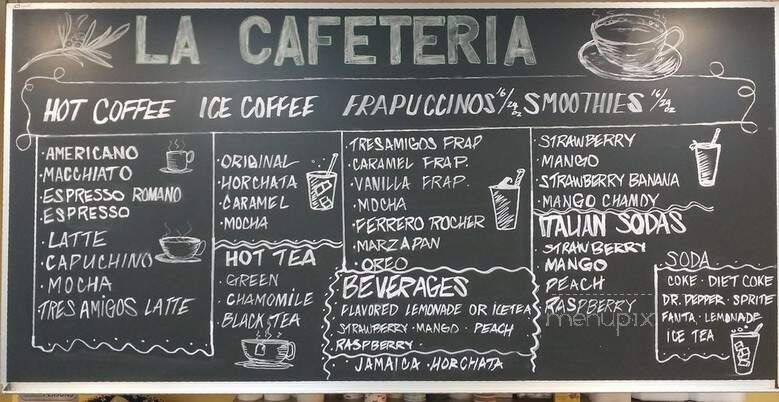 LA CAFETERIA
HOT COFFEE
·AMERICANO
·MACCHIATO
·ESPRESSO ROMANO
·ESPRESSO
·LATTE
·CAPUCHINO
·MOCHA
·TRES AMIGOS LATTE
ICE COFFEE
·ORIGINAL
·HORCHATA
·CARAMEL
·MOCHA
HOT TEA
·GREEN
·CHAMOMILE
·BLACK TEA
FRAPUCCINOS 16/24 oz
·TRESAMIGOS FRAP
·CARAMEL FRAP.
·VANILLA FRAP.
·MOCHA
·FERRERO ROCHER
·MARZAPAN
·OREO
BEVERAGES
FLAVORED LEMONADE OR ICETEA
STRAWBERRY · MANGO · PEACH
RASPBERRY ·
·JAMAICA ·HORCHATA
SMOOTHIES 16/24 oz
·STRAWBERRY
·MANGO
·STRAWBERRY BANANA
·MANGO CHAMOY
ITALIAN SODAS
·STRAWBERRY
·MANGO
·PEACH
·RASPBERRY
SODA
COKE · DIET COKE
DR. PEPPER · SPRITE
FANTA · LEMONADE
ICE TEA
menupix